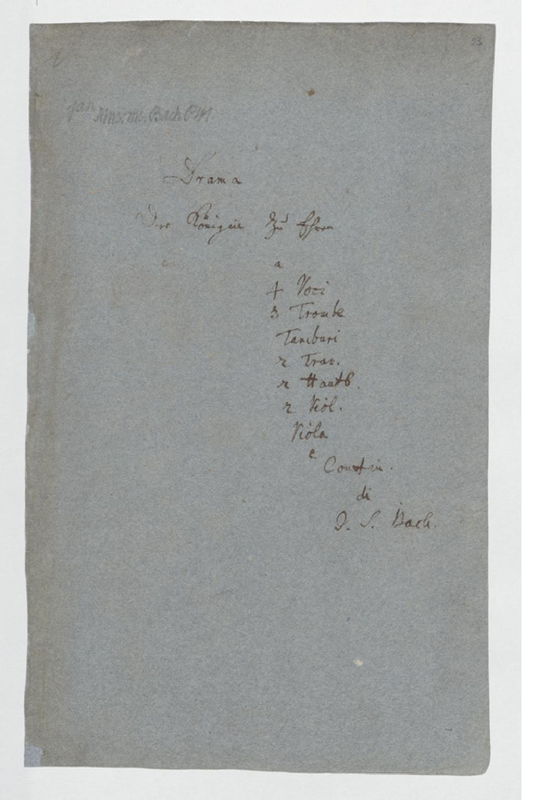 33
Mus. ms. Bach P 41
Drama
Der Königin zu Ehren
a
4 Voci
3 Trombe
Tamburi
2 Trav.
2 Hautb.
2 Viol.
Viola
e
Contin.
di
J. S. Bach.